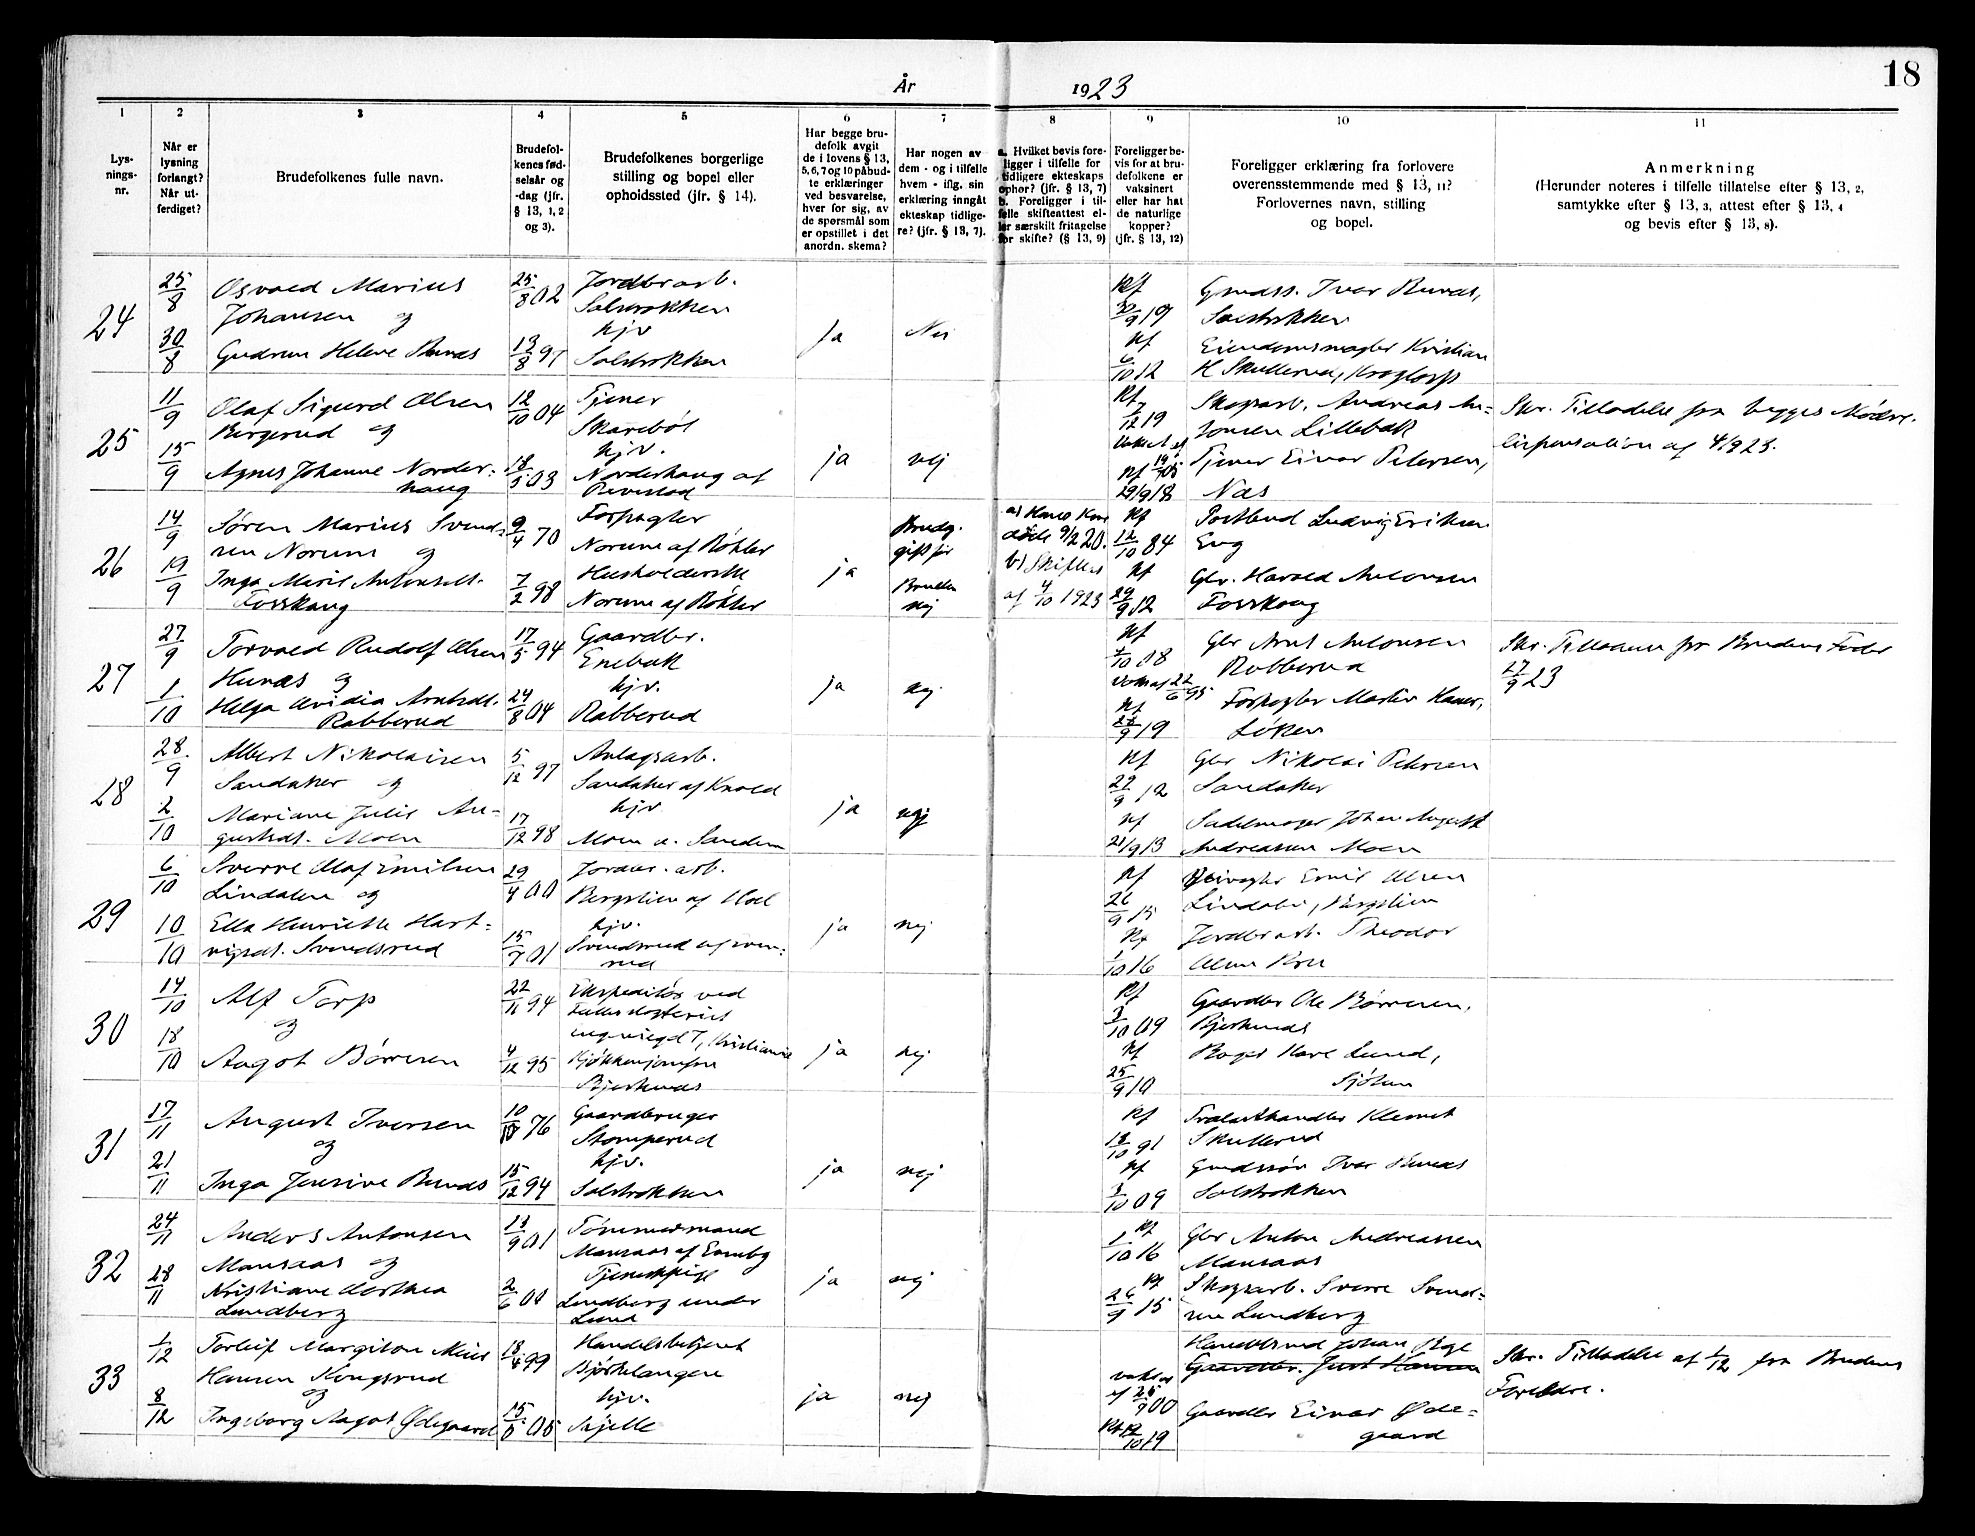 18
År 1923
1 2 3 4 5 6 7 8 9 10 11
Lys-
nings-
nr.
Når er
lysning
forlangt?
Når ut-
ferdiget?
Brudefolkenes fulle navn.
Brudefol-
kenes fød-
selsår og
-dag (jfr.
§ 13, 1, 2
og 3).
Brudefolkenes borgerlige
stilling og bopel eller
opholdssted (jfr. § 14).
Har begge bru-
defolk avgit
de i lovens § 13,
5, 6, 7 og 10 påbud-
te erklæringer
ved besvarelse,
hver for sig, av
de spørsmål som
er opstillet i det
anordn. skema?
Har nogen av
dem - og i tilfelle
hvem - iflg. sin
erklæring inngåt
ekteskap tidlige-
re? (jfr. § 13, 7).
a. Hvilket bevis fore-
ligger i tilfelle for
tidligere ekteskaps
ophør? (jfr. § 13, 7)
b. Foreligger i til-
felle skifteattest el-
ler særskilt fritagelse
for skifte? (§ 13, 9)
Foreligger be-
vis for at bru-
defolkene er
vaksinert
eller har hat
de naturlige
kopper?
(jfr. § 13, 12)
Foreligger erklæring fra forlovere
overensstemmende med § 13, 11?
Forlovernes navn, stilling
og bopel.
Anmerkning
(Herunder noteres i tilfelle tillatelse efter § 13, 2,
samtykke efter § 13, 3, attest efter § 13, 4
og bevis efter § 13, 8).
24
25/8
30/8
Osvald Marius
Johansen og
Gudrun Helene Bunæs
25/8 02
13/8 97
Jordbrarb.
Solstrokken
hjv
Solstrokken
Ja
Nei
Kf
30/9 19
Kf
6/10 12
Grundss. Ivar Bunæs,
Solstrokken
Eiendomsmægler Kristian
H Skullerud, Kragtorp
25
11/9
15/9
Olaf Sigurd Olsen
Bergerud og
Agnes Johanne Norder-
haug
12/10 04
18/5 03
Tjener
Skarebøl
hjv.
Norderhaug af
ja
nej
Kf
7/12 19
Kf
29/9 18
Skogsarb. Andreas An-
tonsen Lillebæk
Tjener Einar Petersen,
Næs
Skr. Tilladelse fra begges Mødre.
Dispensation af 4/9 23.
26
14/9
19/9
Søren Marius Svend-
sen Norum og
Inga Marie Antonsdt.
Fosshaug
9/4 70
7/2 98
Forpagter
Norum af Røkler
Husholderske
Norum af Røkler
ja
Brudg.
gift før
Bruden
nej
a) Hans Kone
døde 9/2 20.
b) Skifteat
af 4/10 1923
Kf
12/10 84
Kf
29/9 12
Postbud Ludvig Eriksen
Eng
Gbr. Harald Antonsen
Fosshaug
27
27/9
1/10
Torvald Rudolf Olsen
Hunæs og
Helga Ovidia Arntsdt.
Rabberud
17/5 94
24/8 04
Gaardbr.
Enebak
hjv.
Rabberud
ja
nej
Kf
4/10 08
Kf
28/9 19
Gbr Arnt Antonsen
Rabberud
Forpagter Martin Hansen,
Løken
Skr. Tilladelse fra Brudens Fader
27/9 23
28
28/9
2/10
Albert Nikolaisen
Sandaker og
Mariane Julie Au-
gustsdt. Moen
5/12 97
17/12 98
Anlægsarb.
Sandaker af Krold
hjv
ja
nej
Kf
22/9 12
Kf
21/9 13
Gbr Nikolai Petersen
Sandaker
Sadelmager Johan August
Andreassen Moen
29
6/10
10/10
Sverre Olaf Emilsen
Lindalen og
Ella Henriette Hart-
vigsdt. Svendsrud
29/4 00
15/7 01
Jordbr. arb.
Bergslien af Hol
hjv.
ja
nej
Kf
26/9 15
Kf
1/10 16
Emil Olsen
Lindalen, Bergslien
Jordbrarb. Theodor
Olsen
30
14/10
18/10
Alf Torp
og
Aagot Børresen
22/11 94
4/12 95
Ekspeditør ved
Kristiania
Kjøkkenjomfru
Bjerknæs
ja
nej
Kf
3/10 09
Kf
25/9 10
Gaardbr Ole Børresen,
Bjerknæs
Bager Hare Lund,
31
17/11
21/11
August Iversen
og
Inga Jensine Bunæs
10/10 76
15/12 94
Gaardbruger
Stomperud
hjv.
Solstrokken
ja
nej
Kf
18/10 91
Kf
3/10 09
Trælasthandler Klemet
Skullerud
Grundssør Ivar Bunæs
Solstrokken
32
24/11
28/11
Anders Antonsen
Mansaas og
Kristiane Dorthea
Lundberg
13/9 01
2/6 00
Tømmermand
Mansaas af Eneby
Tjenestepige
Lundberg under
Lund
ja
nej
1/10 Kf 16
Kf
26/9 15
Gbr Anton Andreassen
Mansaas
Skogsarb. Sverre Svend-
sen Lundberg
33
1/12
8/12
Torleif Margiton
Hansen Kongsrud
og
Ingeborg Aagot Ødegaard
18/4 99
15/5 05
Handelsbetjent
Bjørkelangen
hjv.
Skjelle
ja
nej
vakt.
af 25/9 00
Kf 12/10 19
Gaardbr. Just Hansen
Gaardbr Einar Øde-
gaard
Skr. Tilladelse af 1/12 fra Brudens
Forældre.